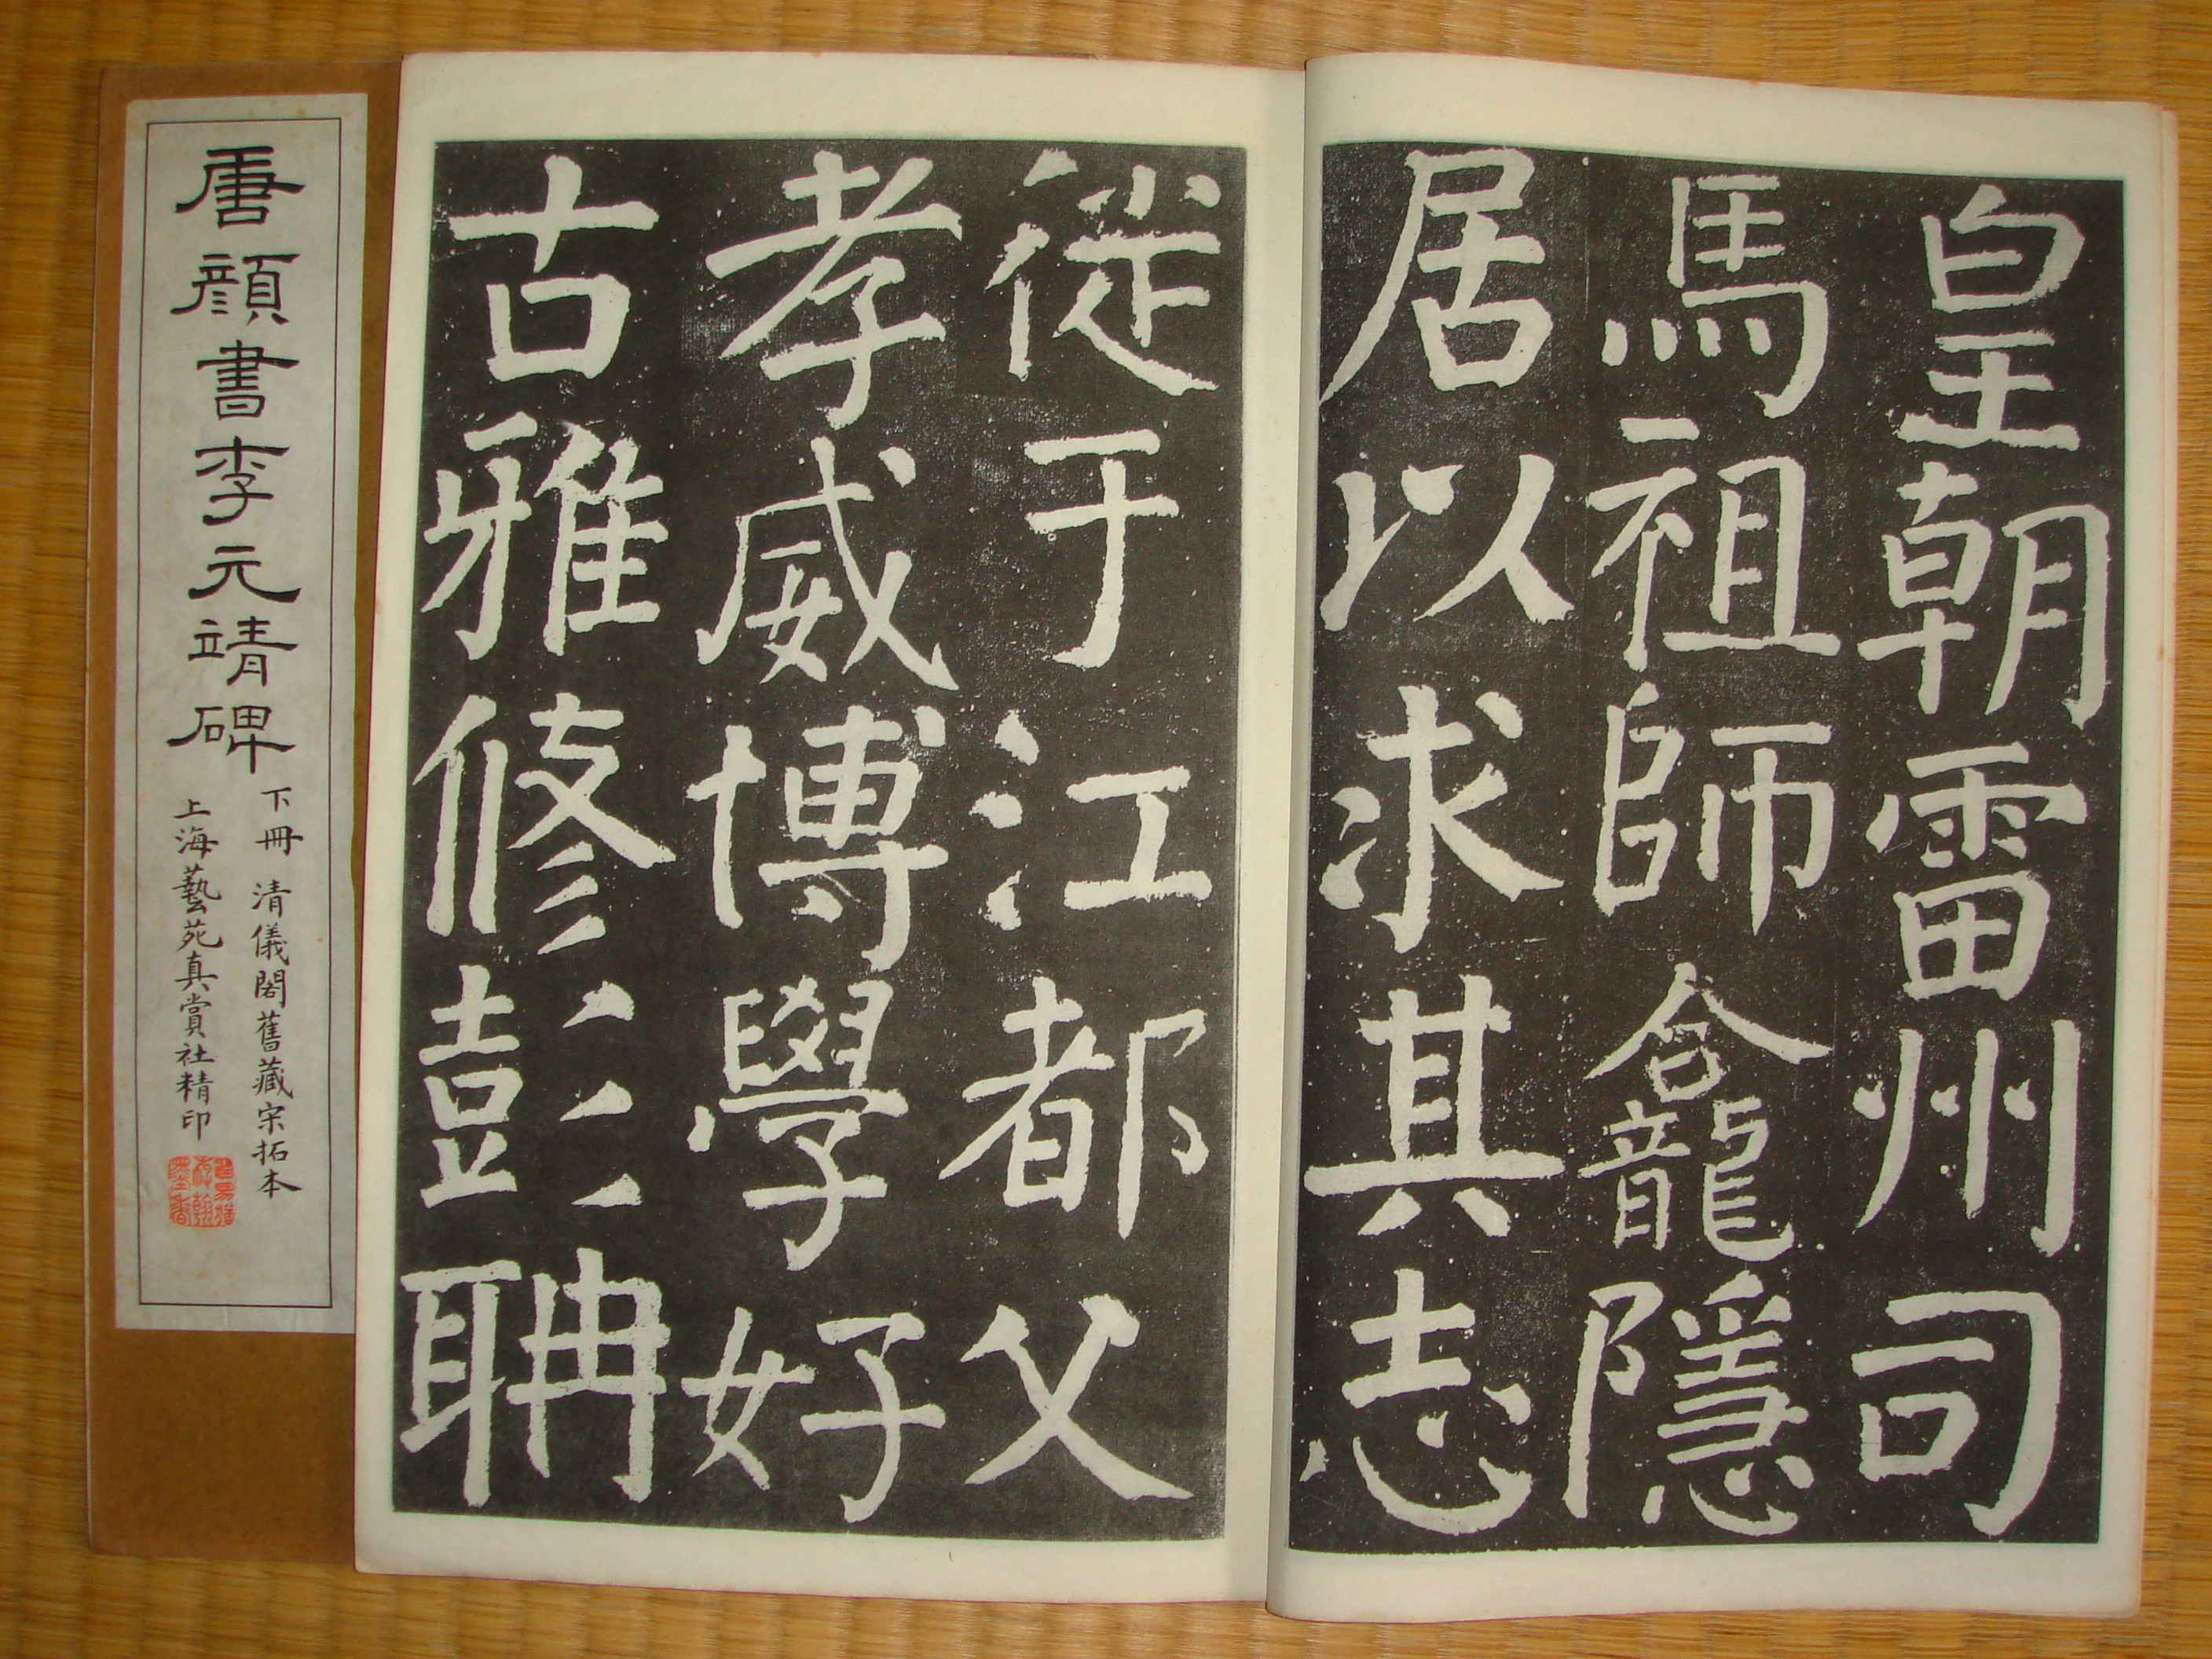 唐顏書李元靖碑
下冊 清儀閣舊藏宋拓本
上海藝苑真賞社精印
皇朝雷州司
馬祖師龕隱
居以求其志
從于江都父
孝威博學好
古雅修彭聃